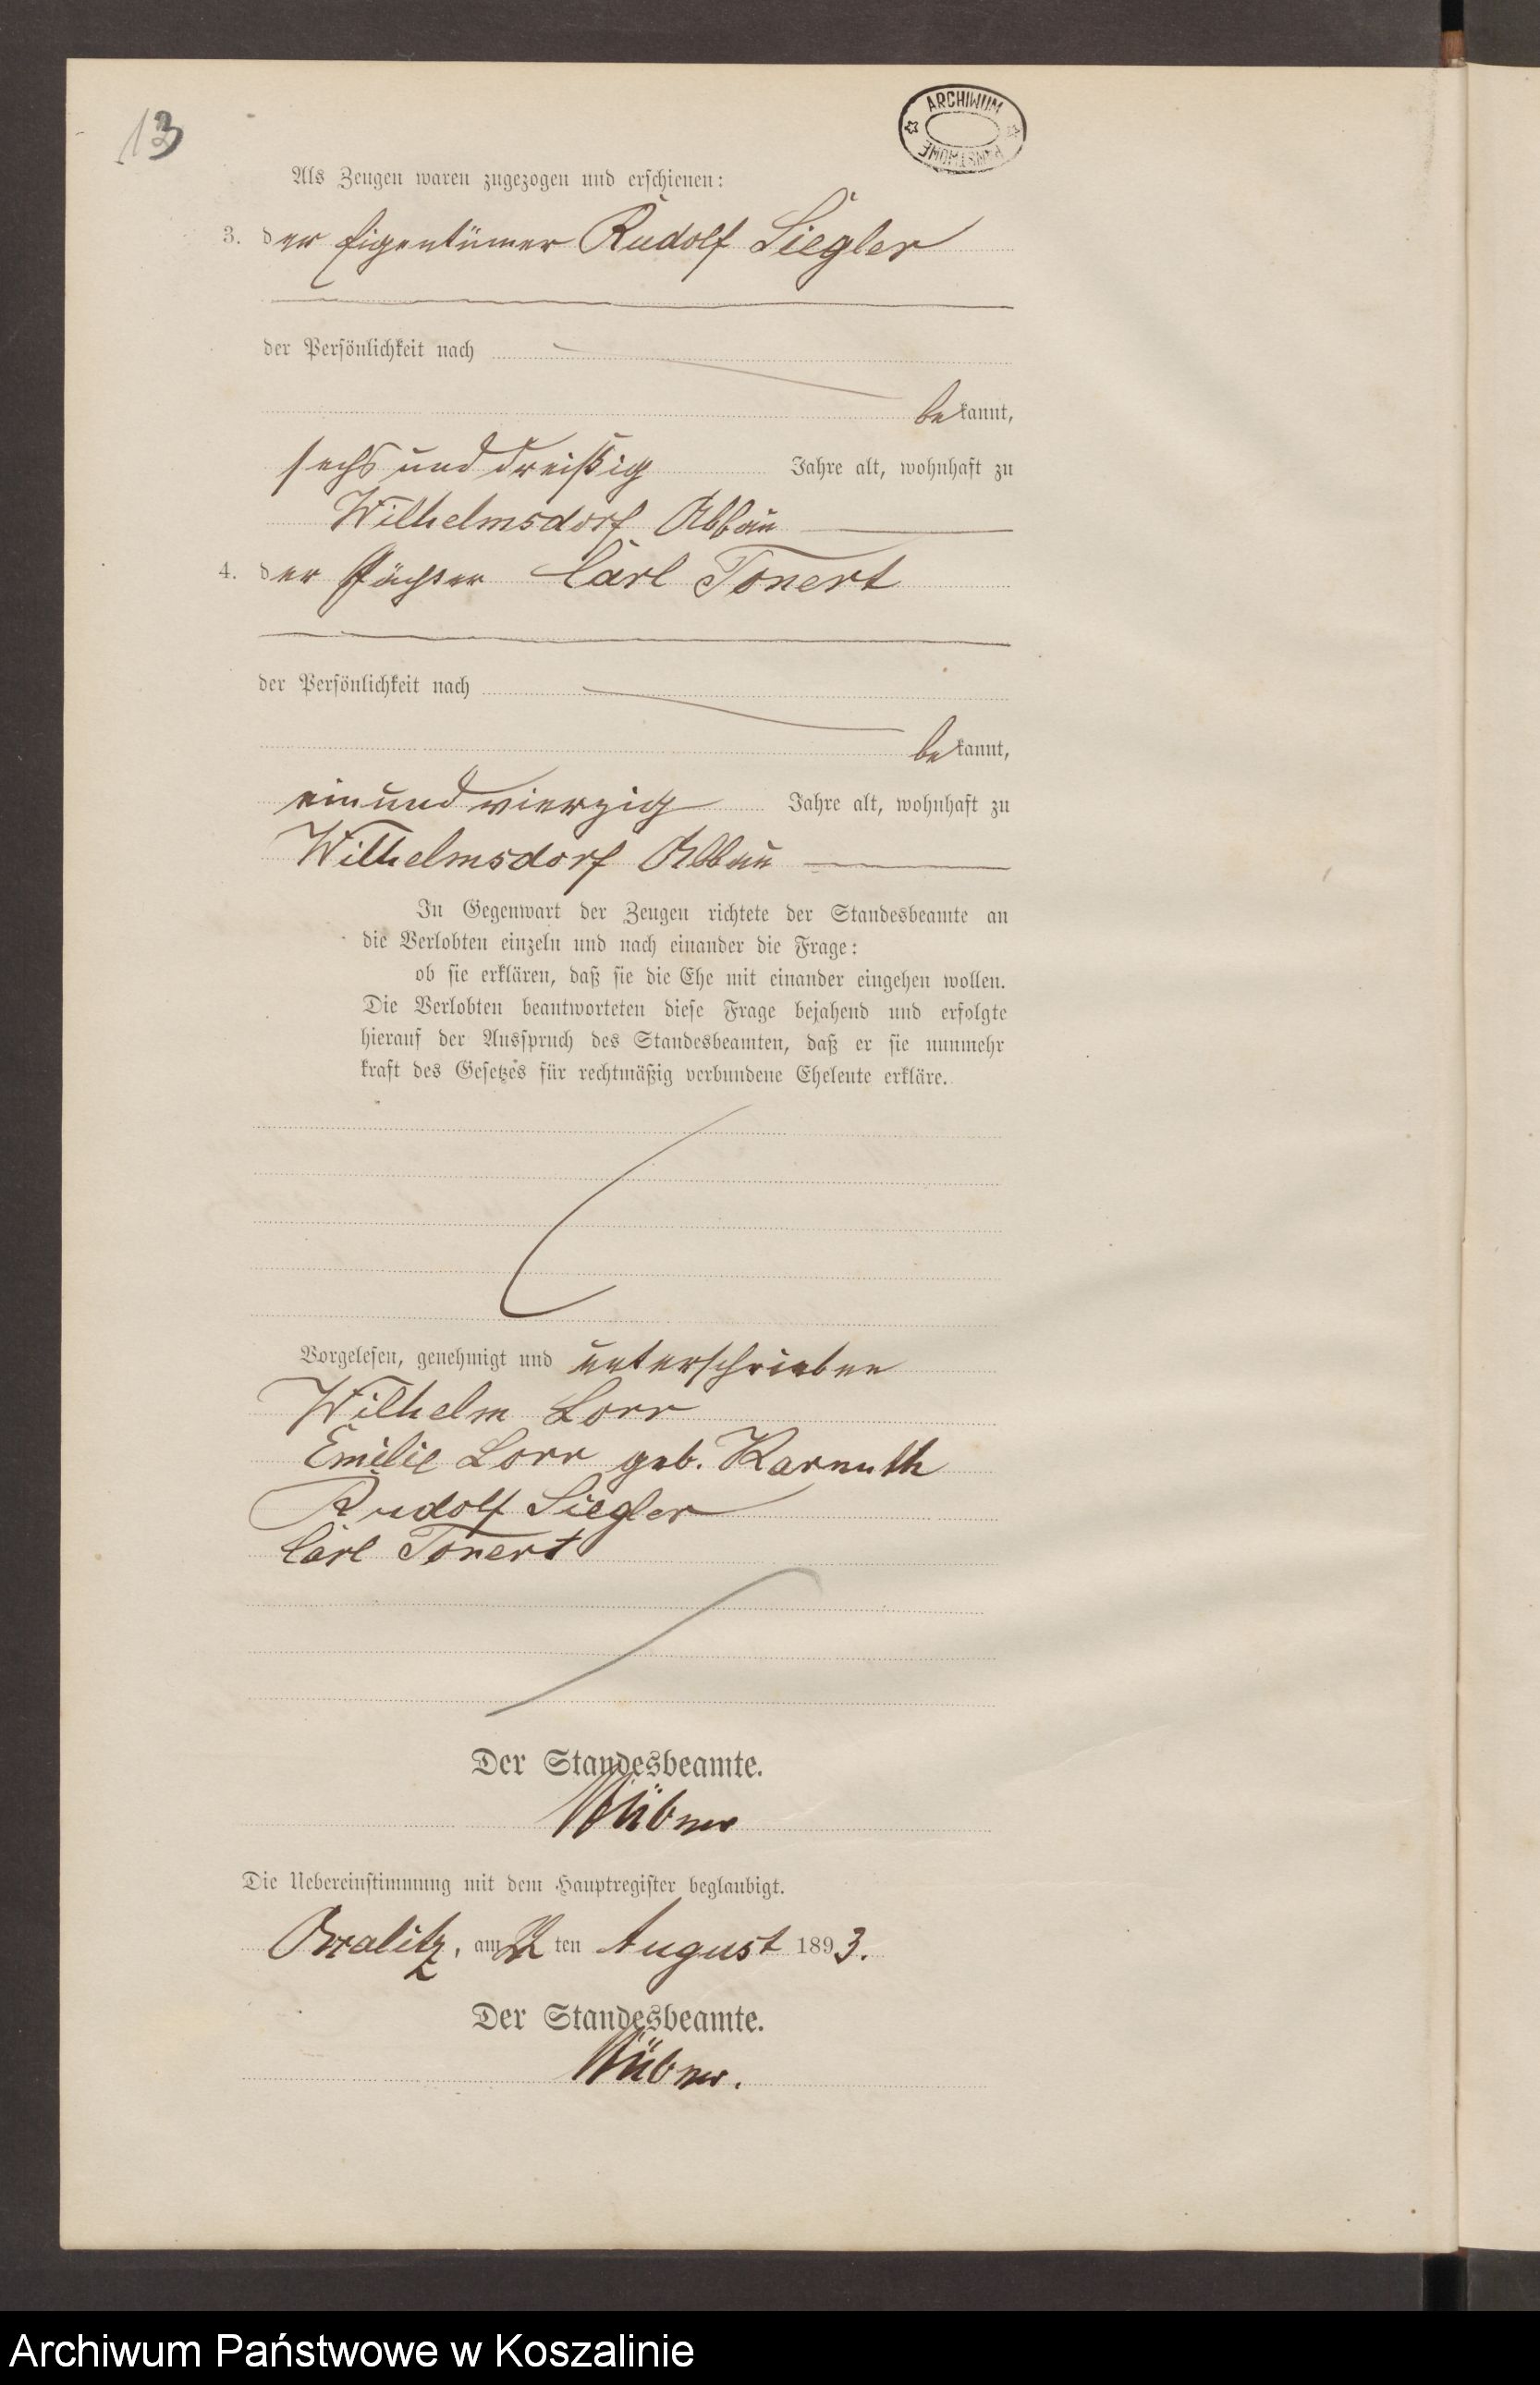 13
ARCHIWUM
PAŃSTWOWE
Als Zeugen waren zugezogen und erschienen:
3. der Eigentümer Rudolf Siegler
der Persönlichkeit nach
bekannt,
sechs und dreißig Jahre alt, wohnhaft zu
Wilhelmsdorf Abbau
4. der Pächter Carl Tonert
der Persönlichkeit nach
bekannt,
ein und vierzig Jahre alt, wohnhaft zu
Wilhelmsdorf Abbau
In Gegenwart der Zeugen richtete der Standesbeamte an
die Verlobten einzeln und nach einander die Frage:
ob sie erklären, daß sie die Ehe mit einander eingehen wollen.
Die Verlobten beantworteten diese Frage bejahend und erfolgte
hierauf der Ausspruch des Standesbeamten, daß er sie nunmehr
kraft des Gesetzes für rechtmäßig verbundene Eheleute erkläre.
Vorgelesen, genehmigt und unterschrieben
Wilhelm Lorr
Emilie Lorr geb. Karnuth
Rudolf Siegler
Carl Tonert
Der Standesbeamte.
Die Uebereinstimmung mit dem Hauptregister beglaubigt.
am ten August 1893.
Der Standesbeamte.
Archiwum Państwowe w Koszalinie